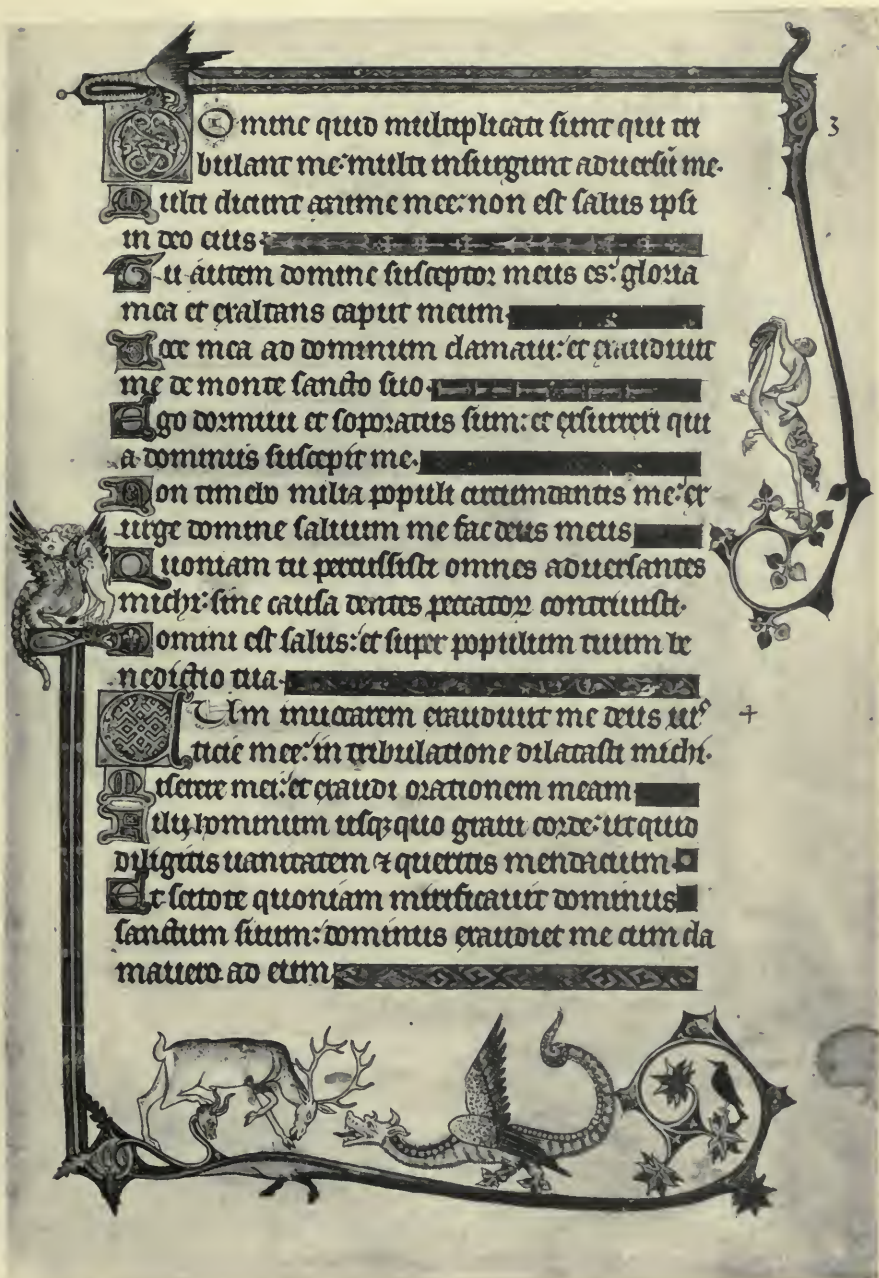 Domine quid multiplicati sunt qui tri 3
bulant me: multi insurgunt adversũ me.
Multi dicunt anime mee: non est salus ipsi
in deo eius:
Tu autem domine susceptor meus es: gloria
mea et exaltans caput meum.
Voce mea ad dominum clamaui: et exaudiuit
me de monte sancto suo.
Ego dormiui et soporatus sum: et exsurrexi qui
a dominus suscepit me.
Non timebo milia populi circumdantis me: ex
urge domine saluum me fac deus meus
Quoniam tu percussisti omnes aduersantes
michi: sine causa dentes peccatoꝝ contriuisti.
Domini est salus: et super populum tuum be
nedictio tua.
CUm inuocarem exaudiuit me deus ius 4
ticie mee: in tribulatione dilatasti michi.
Miserere mei: et exaudi orationem meam
Filij hominum usqꝫ quo graui corde: ut quid
diligitis uanitatem ⁊ queritis mendacium.
Et scitote quoniam mirificauit dominus
sanctum suum: dominus exaudiet me cum cla
mauero ad eum